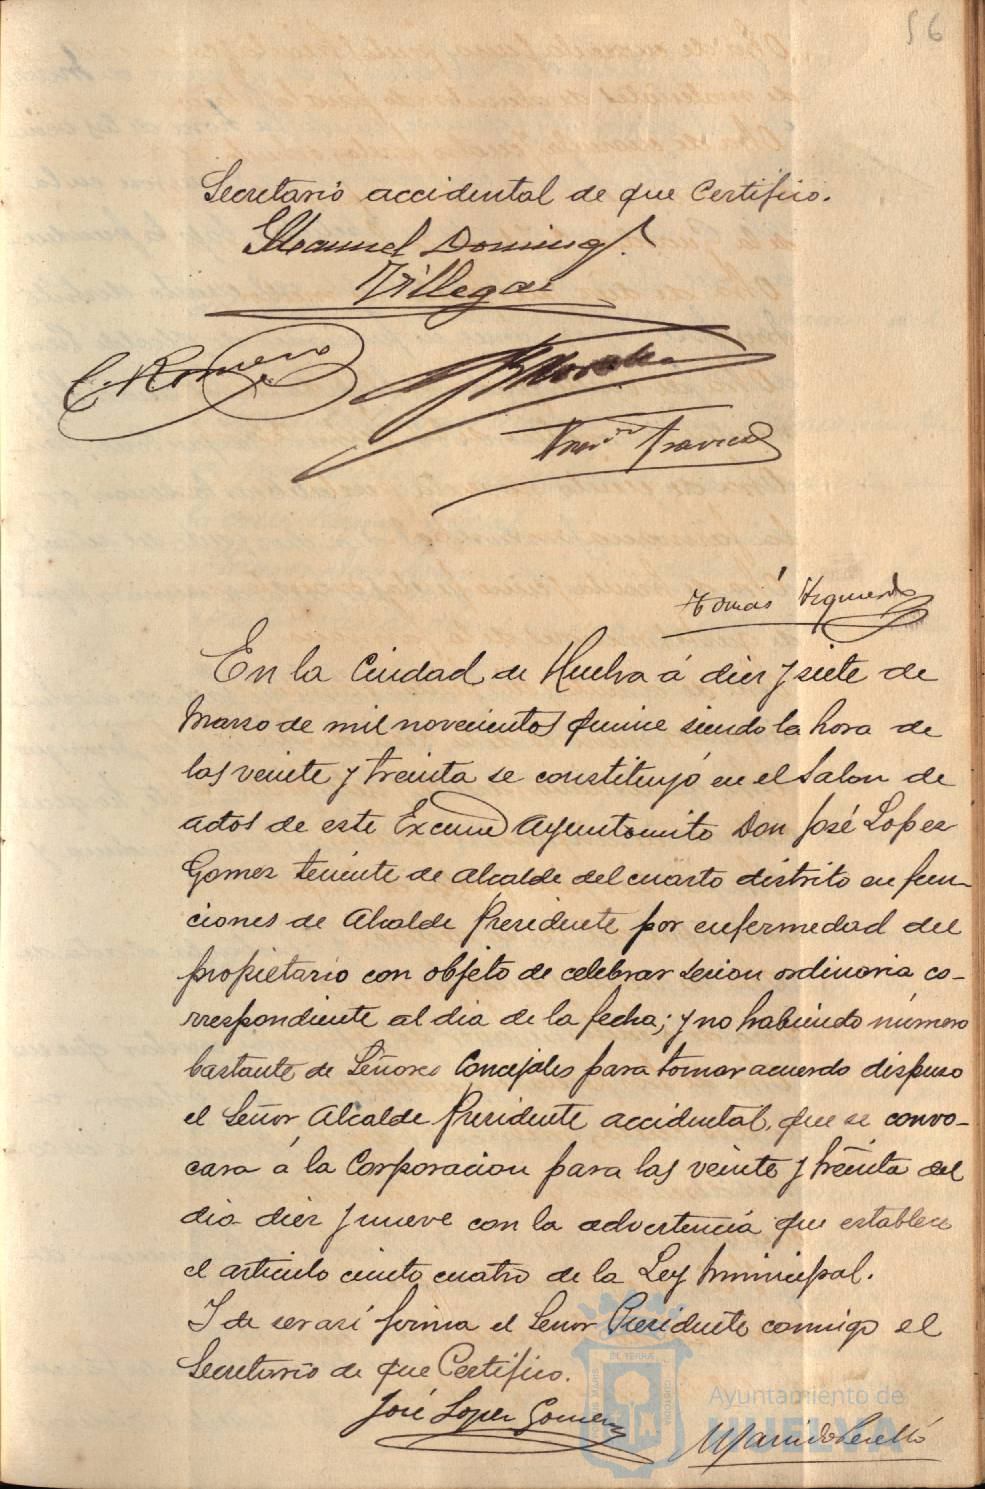 56
Secretario accidental de que Certifico.
Manuel Doming
Villegas
C. Romero
Tomás Izquierdo
En la Ciudad de Huelva á diez y siete de
Marzo de mil novecientos quince siendo la hora de
las veinte y treinta se constituyó en el Salon de
actos de este Excmo Ayuntamito Don José Lopez
Gomez teniente de Alcalde del cuarto distrito en fun-
ciones de Alcalde Presidente por enfermedad del
propietario con objeto de celebrar sesion ordinaria co-
rrespondiente al dia de la fecha; y no habiendo número
bastante de Señores Concejales para tomar acuerdo dispuso
el Señor Alcalde Presidente accidental, que se convo-
cara á la Corporacion para las veinte y treinta del
dia diez y nueve con la advertencia que establece
el articulo ciento cuatro de la Ley Municipal.
Y de ser asi firma el Señor Presidente conmigo el
Secretario de que Certifico.
José Lopez Gomez
Ayuntamiento de
HUELVA